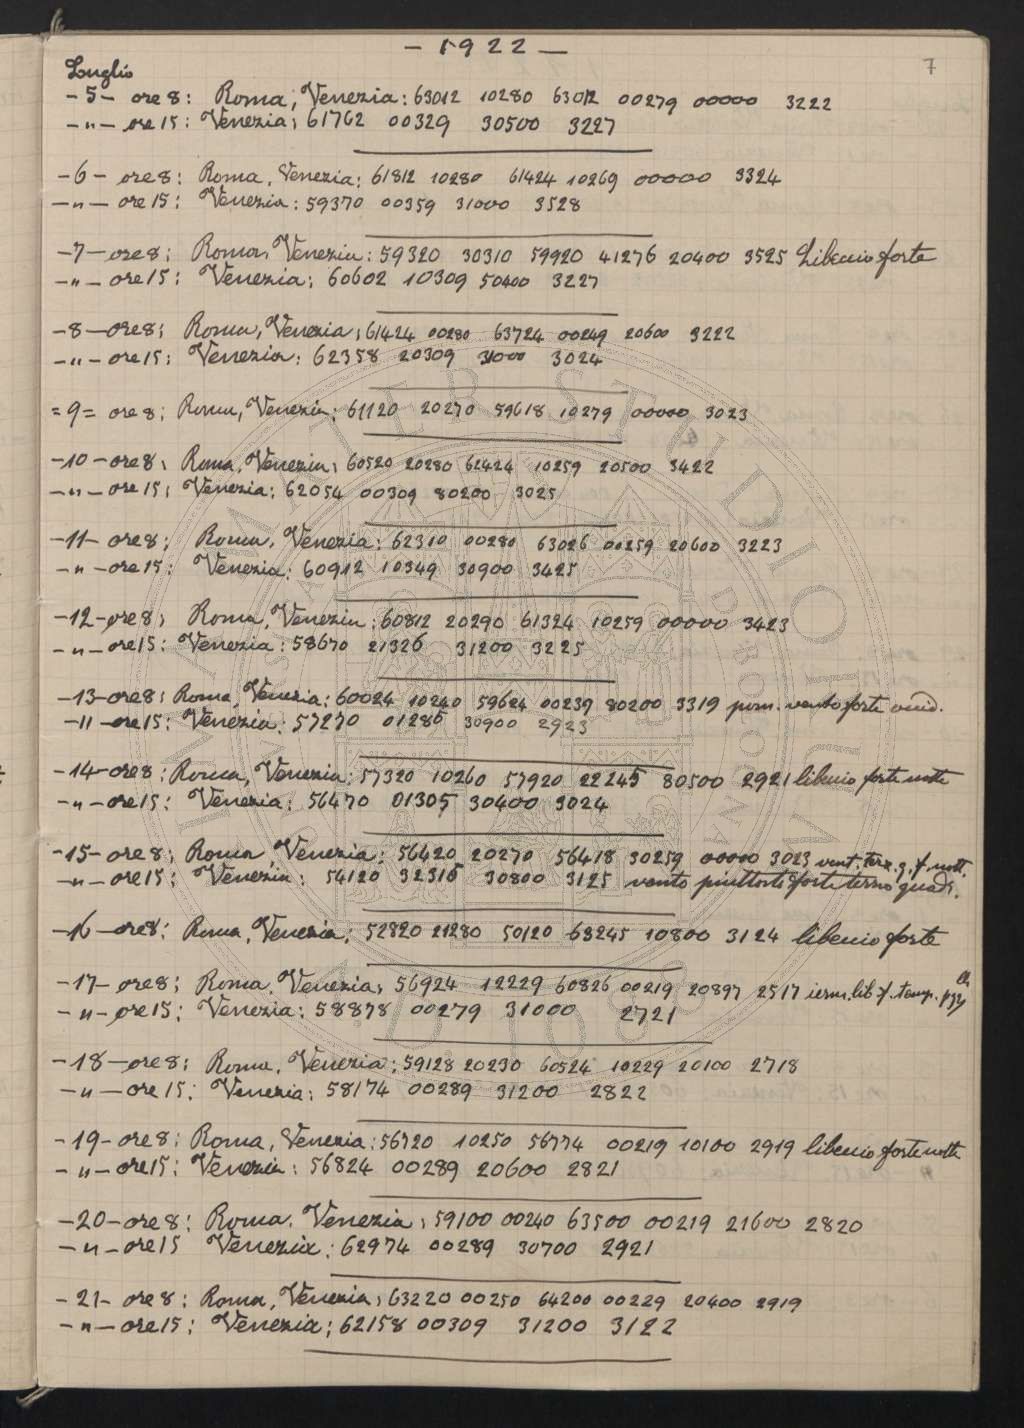 - 1922 -
7
Luglio
- 5 - ore 8: Roma, Venezia: 63012 10280 63012 00279 00000 3222
- " - ore 15: Venezia: 61762 00329 30500 3227
- 6 - ore 8: Roma, Venezia: 61812 10280 61424 10269 00000 3324
- " - ore 15: Venezia: 59370 00359 31000 3528
- 7 - ore 8: Roma, Venezia: 59320 30310 59920 41276 20400 3525 Libeccio forte
- " - ore 15: Venezia: 60602 10309 50400 3227
- 8 - ore 8: Roma, Venezia: 61424 00280 63724 00249 20600 3222
- " - ore 15: Venezia: 62358 20309 31000 3024
= 9 = ore 8: Roma, Venezia: 61120 20270 59618 10279 00000 3023
- 10 - ore 8: Roma, Venezia: 60520 20280 62424 10259 20500 3422
- " - ore 15: Venezia: 62054 00309 80200 3025
- 11 - ore 8: Roma, Venezia: 62310 00280 63026 00259 20600 3223
- " - ore 15: Venezia: 60912 10349 30900 3425
- 12 - ore 8: Roma, Venezia: 60812 20290 61324 10259 00000 3423
- " - ore 15: Venezia: 58670 21326 31200 3225
- 13 - ore 8: Roma, Venezia: 60024 10240 59624 00239 80200 3319 pom. vento forte
- 11 - ore 15: Venezia: 57270 01286 30900 2923
- 14 - ore 8: Roma, Venezia: 57320 10260 57920 22245 80500 2921 libeccio forte notte
- " - ore 15: Venezia: 56470 01305 30400 3024
- 15 - ore 8: Roma, Venezia: 56420 20270 56418 30259 00000 3023 vent. terz. q. f. nott.
- " - ore 15: Venezia: 54120 32316 30800 3125 vento piuttosto forte terzo quadr.
- 16 - ore 8: Roma, Venezia: 52820 21280 50120 63245 10800 3124 libeccio forte
- 17 - ore 8: Roma, Venezia: 56924 12229 60826 00219 20897 2517 lib. f. temp.
- " - ore 15: Venezia: 58878 00279 31000 2721
- 18 - ore 8: Roma, Venezia: 59128 20230 60524 10229 20100 2718
- " - ore 15: Venezia: 58174 00289 31200 2822
- 19 - ore 8: Roma, Venezia: 56720 10250 56774 00219 10100 2919 libeccio forte notte
- " - ore 15: Venezia: 56824 00289 20600 2821
- 20 - ore 8: Roma, Venezia: 59100 00240 63500 00219 21600 2820
- " - ore 15 Venezia: 62974 00289 30700 2921
- 21 - ore 8: Roma, Venezia: 63220 00250 64200 00229 20400 2919
- " - ore 15: Venezia: 62158 00309 31200 3122